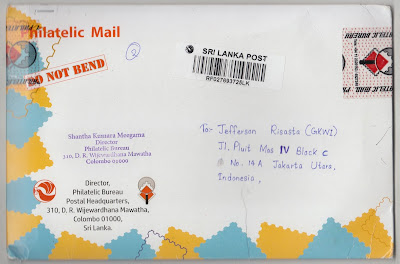 Philatelic Mail
DO NOT BEND
2
SRI LANKA POST
RF027893725LK
Shantha Kumara Meegama
Director
Philatelic Bureau
310, D. R. Wijewardhana Mawatha
Colombo 01000
To- Jefferson Risasta (GKWI)
Jl. Pluit Mas IV Block C
No. 14A Jakarta Utara,
Indonesia,
Director,
Philatelic Bureau
Postal Headquarters,
310, D. R. Wijewardhana Mawatha,
Colombo 01000,
Sri Lanka.